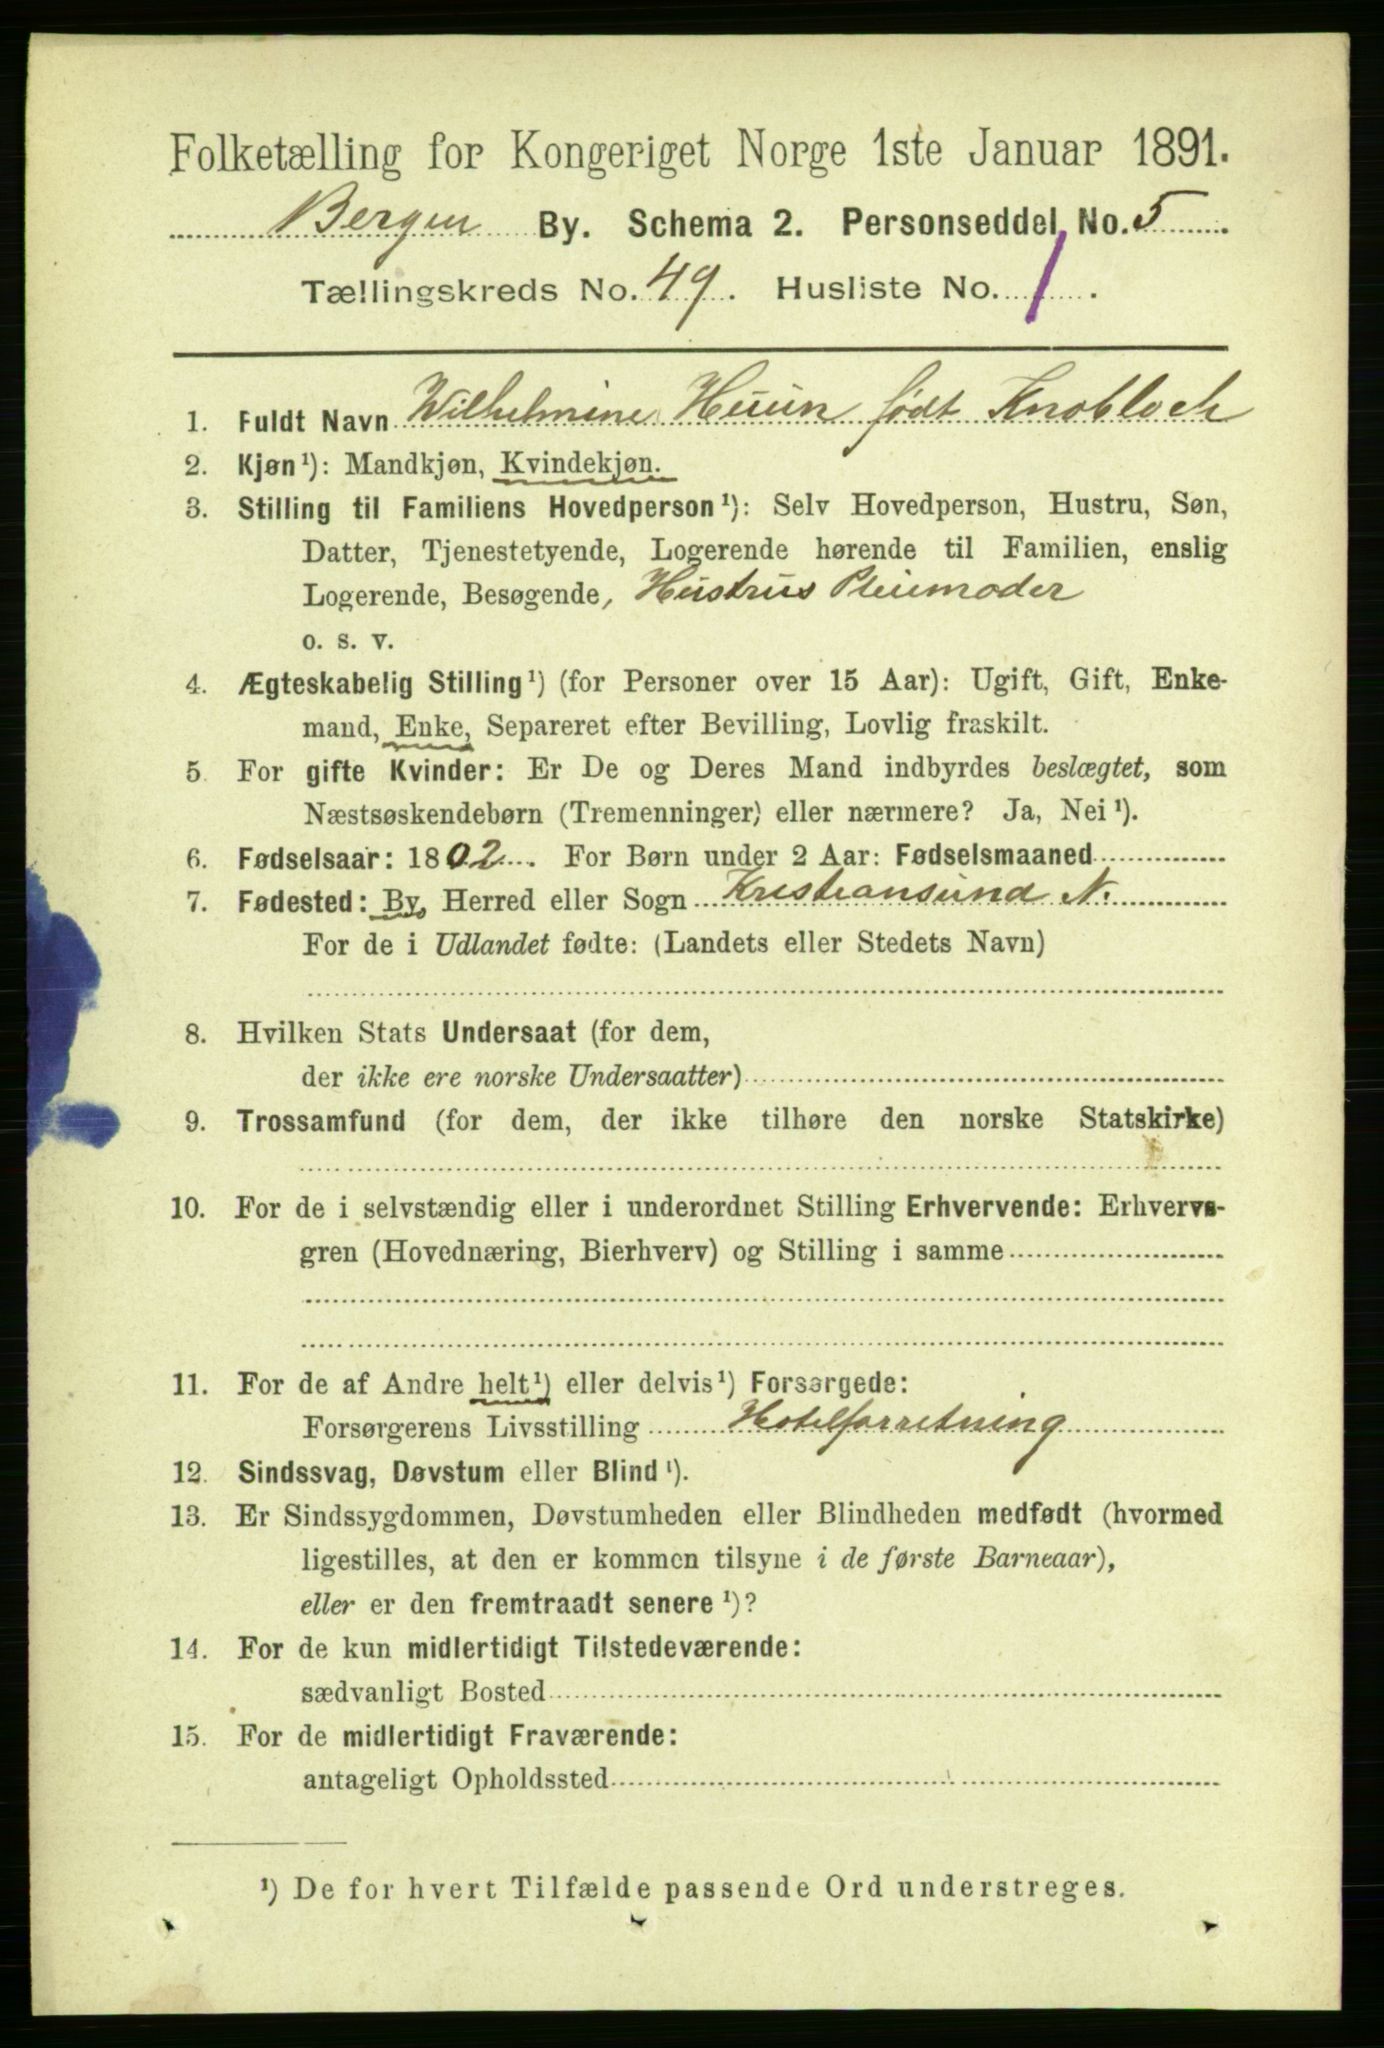 Folketælling for Kongeriget Norge 1ste Januar 1891.
Bergen By. Schema 2. Personseddel No. 5
Tællingskreds No. 49. Husliste No. 1.
1. Fuldt Navn Wilhelmine Huun født Knobloch
2. Kjøn¹): Mandkjøn, Kvindekjøn.
3. Stilling til Familiens Hovedperson¹): Selv Hovedperson, Hustru, Søn,
Datter, Tjenestetyende, Logerende hørende til Familien, enslig
Logerende, Besøgende, Hustrus Pleiemoder
o. s. v.
4. Ægteskabelig Stilling¹) (for Personer over 15 Aar): Ugift, Gift, Enke-
mand, Enke, Separeret efter Bevilling, Lovlig fraskilt.
5. For gifte Kvinder: Er De og Deres Mand indbyrdes beslægtet, som
Næstsøskendebørn (Tremenninger) eller nærmere? Ja, Nei¹).
6. Fødselsaar: 1802. For Børn under 2 Aar: Fødselsmaaned
7. Fødested: By, Herred eller Sogn Kristiansund N.
For de i Udlandet fødte: (Landets eller Stedets Navn)
8. Hvilken Stats Undersaat (for dem,
der ikke ere norske Undersaatter)
9. Trossamfund (for dem, der ikke tilhøre den norske Statskirke)
10. For de i selvstændig eller i underordnet Stilling Erhvervende: Erhvervs-
gren (Hovednæring, Bierhverv) og Stilling i samme
11. For de af Andre helt¹) eller delvis¹) Forsørgede:
Forsørgerens Livsstilling Hotelforretning
12. Sindssvag, Døvstum eller Blind¹).
13. Er Sindssygdommen, Døvstumheden eller Blindheden medfødt (hvormed
ligestilles, at den er kommen tilsyne i de første Barneaar),
eller er den fremtraadt senere¹)?
14. For de kun midlertidigt Tilstedeværende:
sædvanligt Bosted
15. For de midlertidigt Fraværende:
antageligt Opholdssted
¹) De for hvert Tilfælde passende Ord understreges.